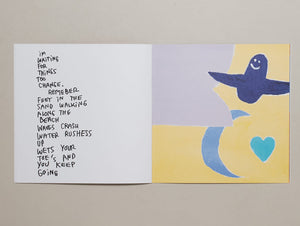 I'M
WAITING
FOR
THINGS
TOO
CHANGE.
REMEBER
FEET IN THE
SAND WALKING
ALONG THE
BEACH
WAVES CRASH
WATER RUSHESS
UP
WETS YOUR
TOE'S AND
YOU KEEP
GOING